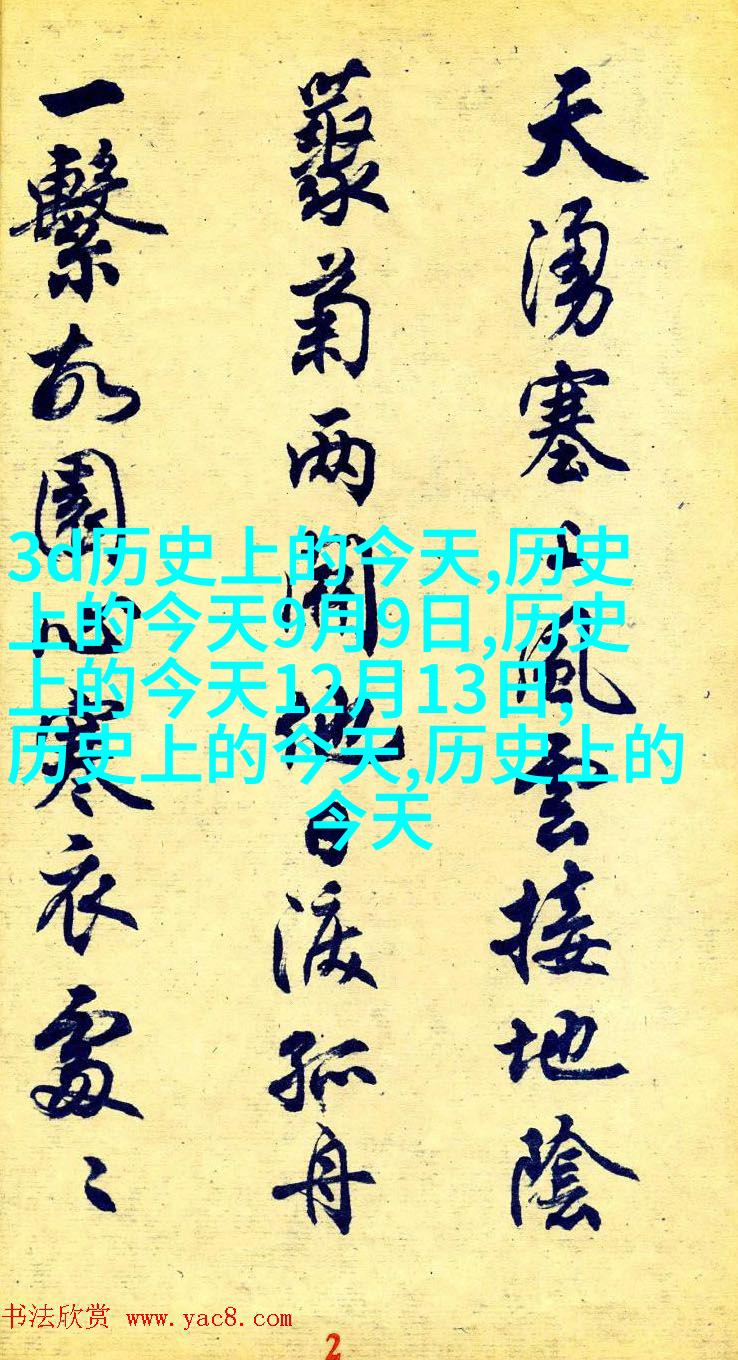 天湧塞上風雲接地陰
藂菊两開他日淚孤舟
一繫故園心寒衣處〻
3d历史上的今天,历史
上的今天9月9日,历史
上的今天12月13日,
历史上的今天,历史上的
今天
书法欣赏 www.yac8.com
2